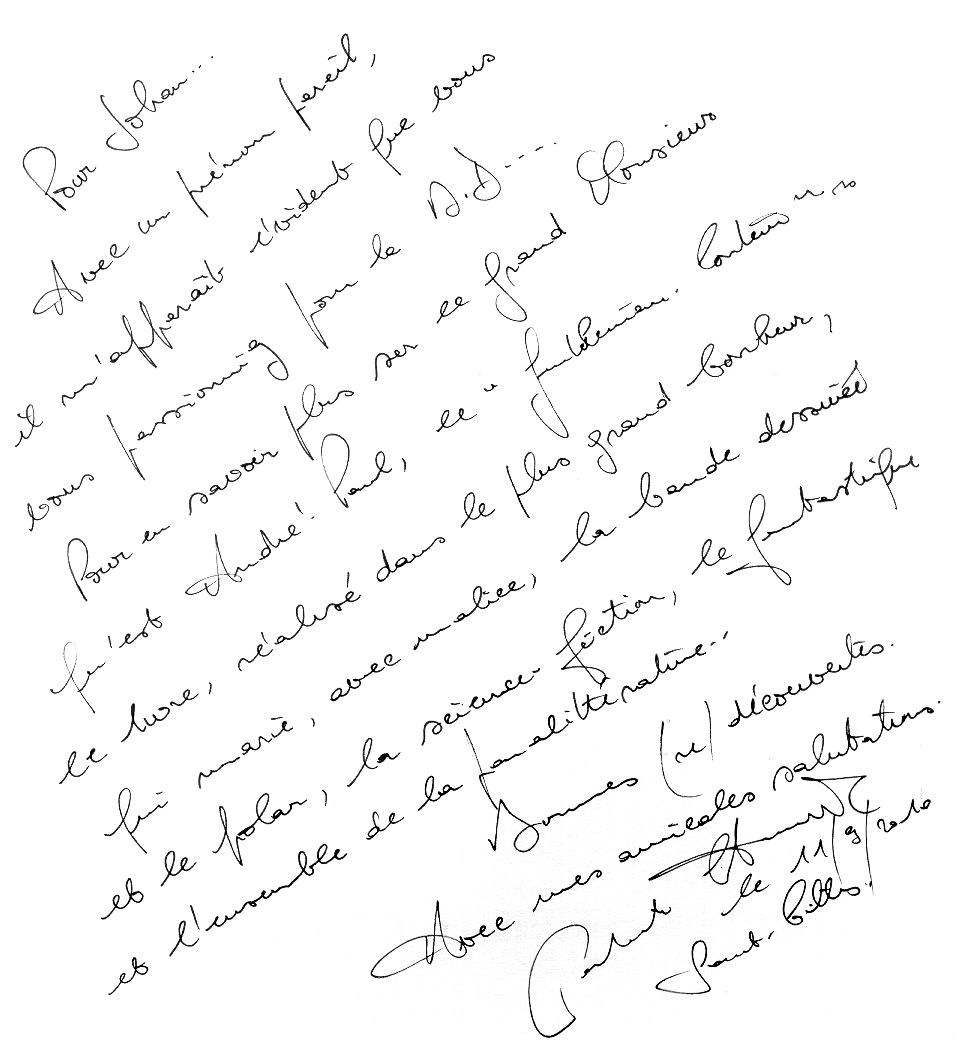 Pour Johan...
Avec un prénom pareil,
il m'apparaît évident que vous
vous passionniez pour la B.D....
Pour en savoir plus sur ce grand Monsieur
qu'est André-Paul, ce "
ce livre, réalisé dans le plus grand bonheur,
qui marie, avec malice, la bande dessinée
et le polar, la science-fiction, le fantastique
et l'ensemble de la paralittérature..
Bonnes (re)découvertes.
Avec mes amicales salutations.
le 11/9/2010
Saint-Gilles.